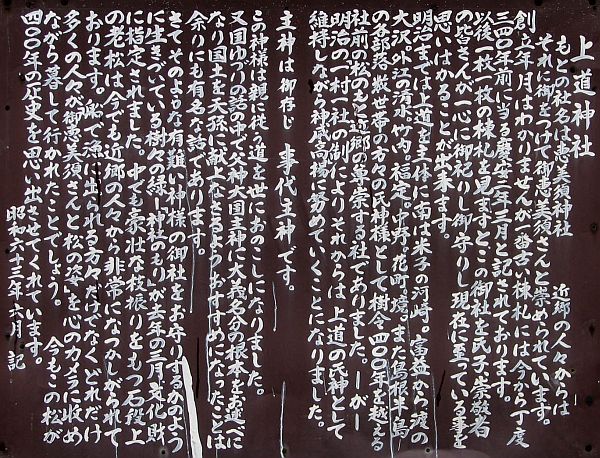 上道神社
もとこの社名は恵美須神社　近郷の人々からは
それに御をつけて御恵美須さんと崇められています。
創立年月はわかりませんが一番古い棟札には今から丁度
三四〇年前に当る慶安二年三月と記されております。
以後一枚一枚の棟札を見ますとこの御社を氏子崇敬者
の皆さんが一心に御祀りし御守りし現在に至っている事を
思いはかることが出来ます。
明治までは上道を主体に南は米子の河崎。富益から渡の
大沢。外江の清水竹内。福定。中野。花町。境。また島根半島
の各部落数世帯の方々の氏神様として樹令四〇〇年を越える
社前の松のもと近郷の尊崇する社でありました。―が―
明治の一村一社の制によりそれからは上道の氏神として
維持しながら神威高揚に努めていくことになりました。
主神は御存じ　事代主神です。
この神様は親に従う道を世におのこしになりました。
又国ゆづりの話の中で父神大国主神に大義名分の根本をお述べに
なり国土を天孫に献上なさるようおすすめになったことは
余りにも有名な話であります。
さてそのような有難い神様の御社をお守りするかのよう
に生きづいている樹々の緑―神社のもり―が去年の三月文化財
に指定されました。中でも豪壮な枝振りをもつ石段上
の老松は今でも近郷の人々から非常になつかしがられて
おります。船で漁に出られる方々だけでなくどれだけ
多くの人々が御恵美須さんと松の姿を心のカメラに収め
ながら暮して行かれたことでしょう。　今もこの松が
四〇〇年の歴史を思い出させてくれています。
昭和六十三年六月　記